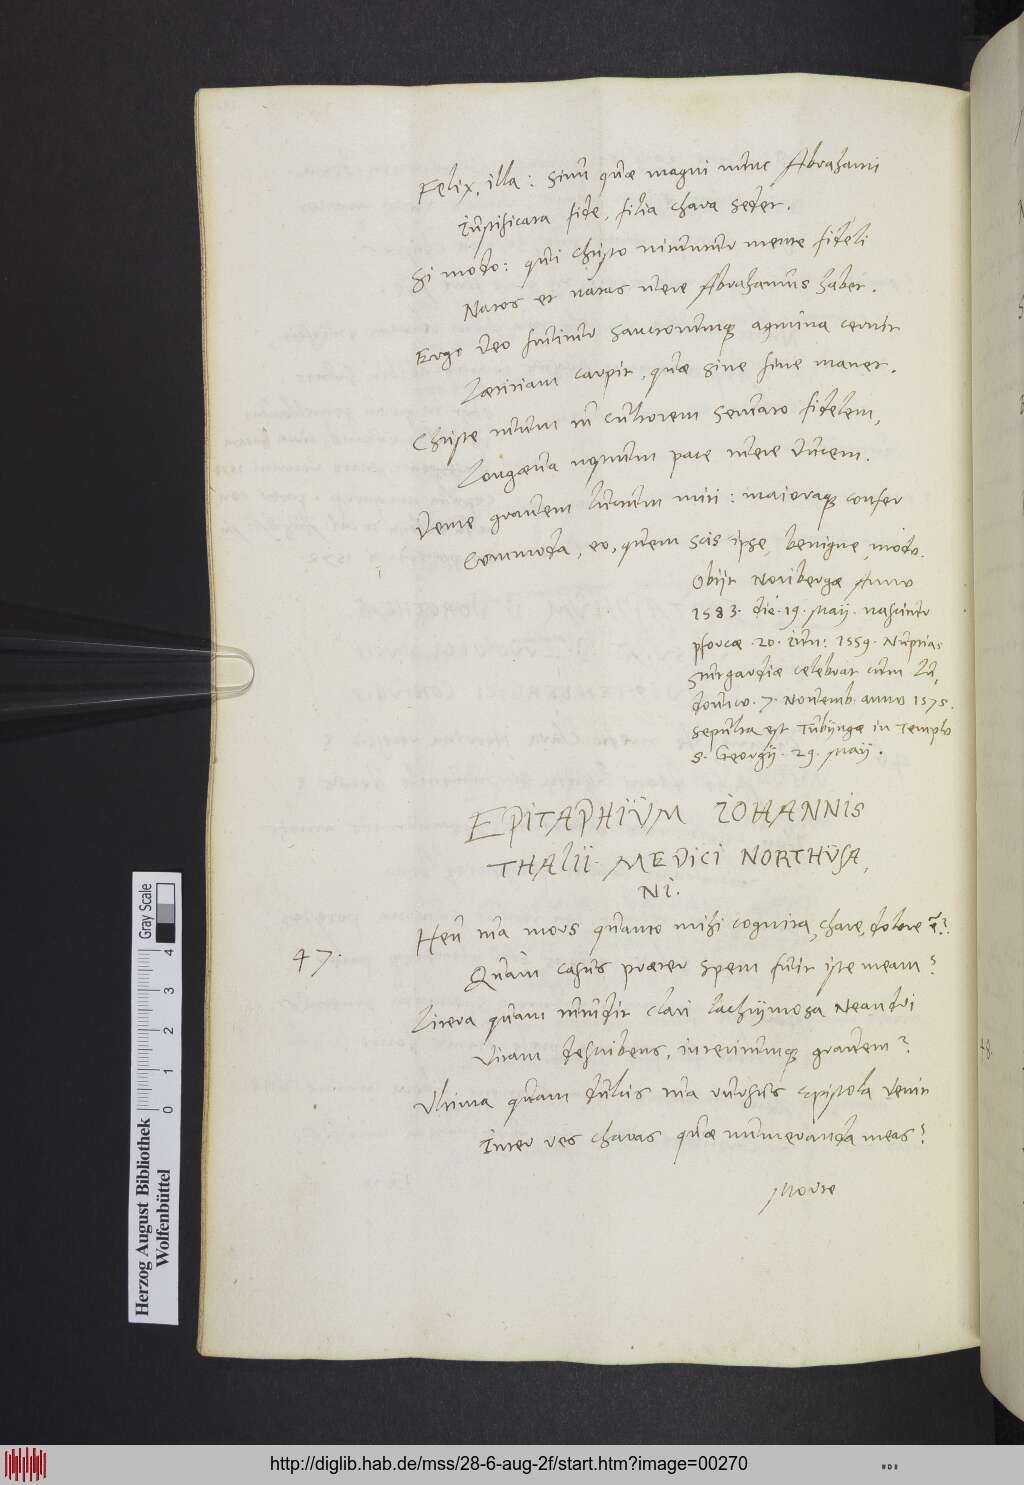 Felix, illa: sinu quae magni nunc Abrahami
Iustificata fide, filia chara sedet.
Si modo: qui Christo nituntur mente fideli
Natos et natas vere Abrahamus habet.
Ergo Deo fruitur sanctorumque agmina cernit
Laetitiam carpit, quae sine fine manet.
Christe tuum in cultorem servato fidelem,
Longaeva nostrum pace tuere ducem.
Deme gravem luctum viri: maioraque confer
Commoda, eo, quem scis ipse, benigne, modo.
Obijt Noribergae Anno
1583. die. 19. Maij. nascitur
Pforcae. 20. Iun: 1559. Nuptias
Stutgardiae celebrat cum Lu,
dovico. 7. Novemb: anno 1575.
Sepulta est Tubijngae in Templo
S. Georgij. 29. Maij.
EPITAPHIUM IOHANNIS
THALII. MEDICI NORTHUSA,
NI.
47.
Heu tua mors quanto mihi cognita, chare, dolore e͂?
Quam casus praeter spem fuit iste meam?
Litera quam tradit clari lachrijmosa Neandri
Vitam describens, interitumque gravem?
Ultima quam dulcis tua rursus epistola venit
Inter res charas quae numeranda meas?
Morte
48.
Herzog August Bibliothek
Wolfenbüttel
Gray Scale
0 1 2 3 4
http://diglib.hab.de/mss/28-6-aug-2f/start.htm?image=00270